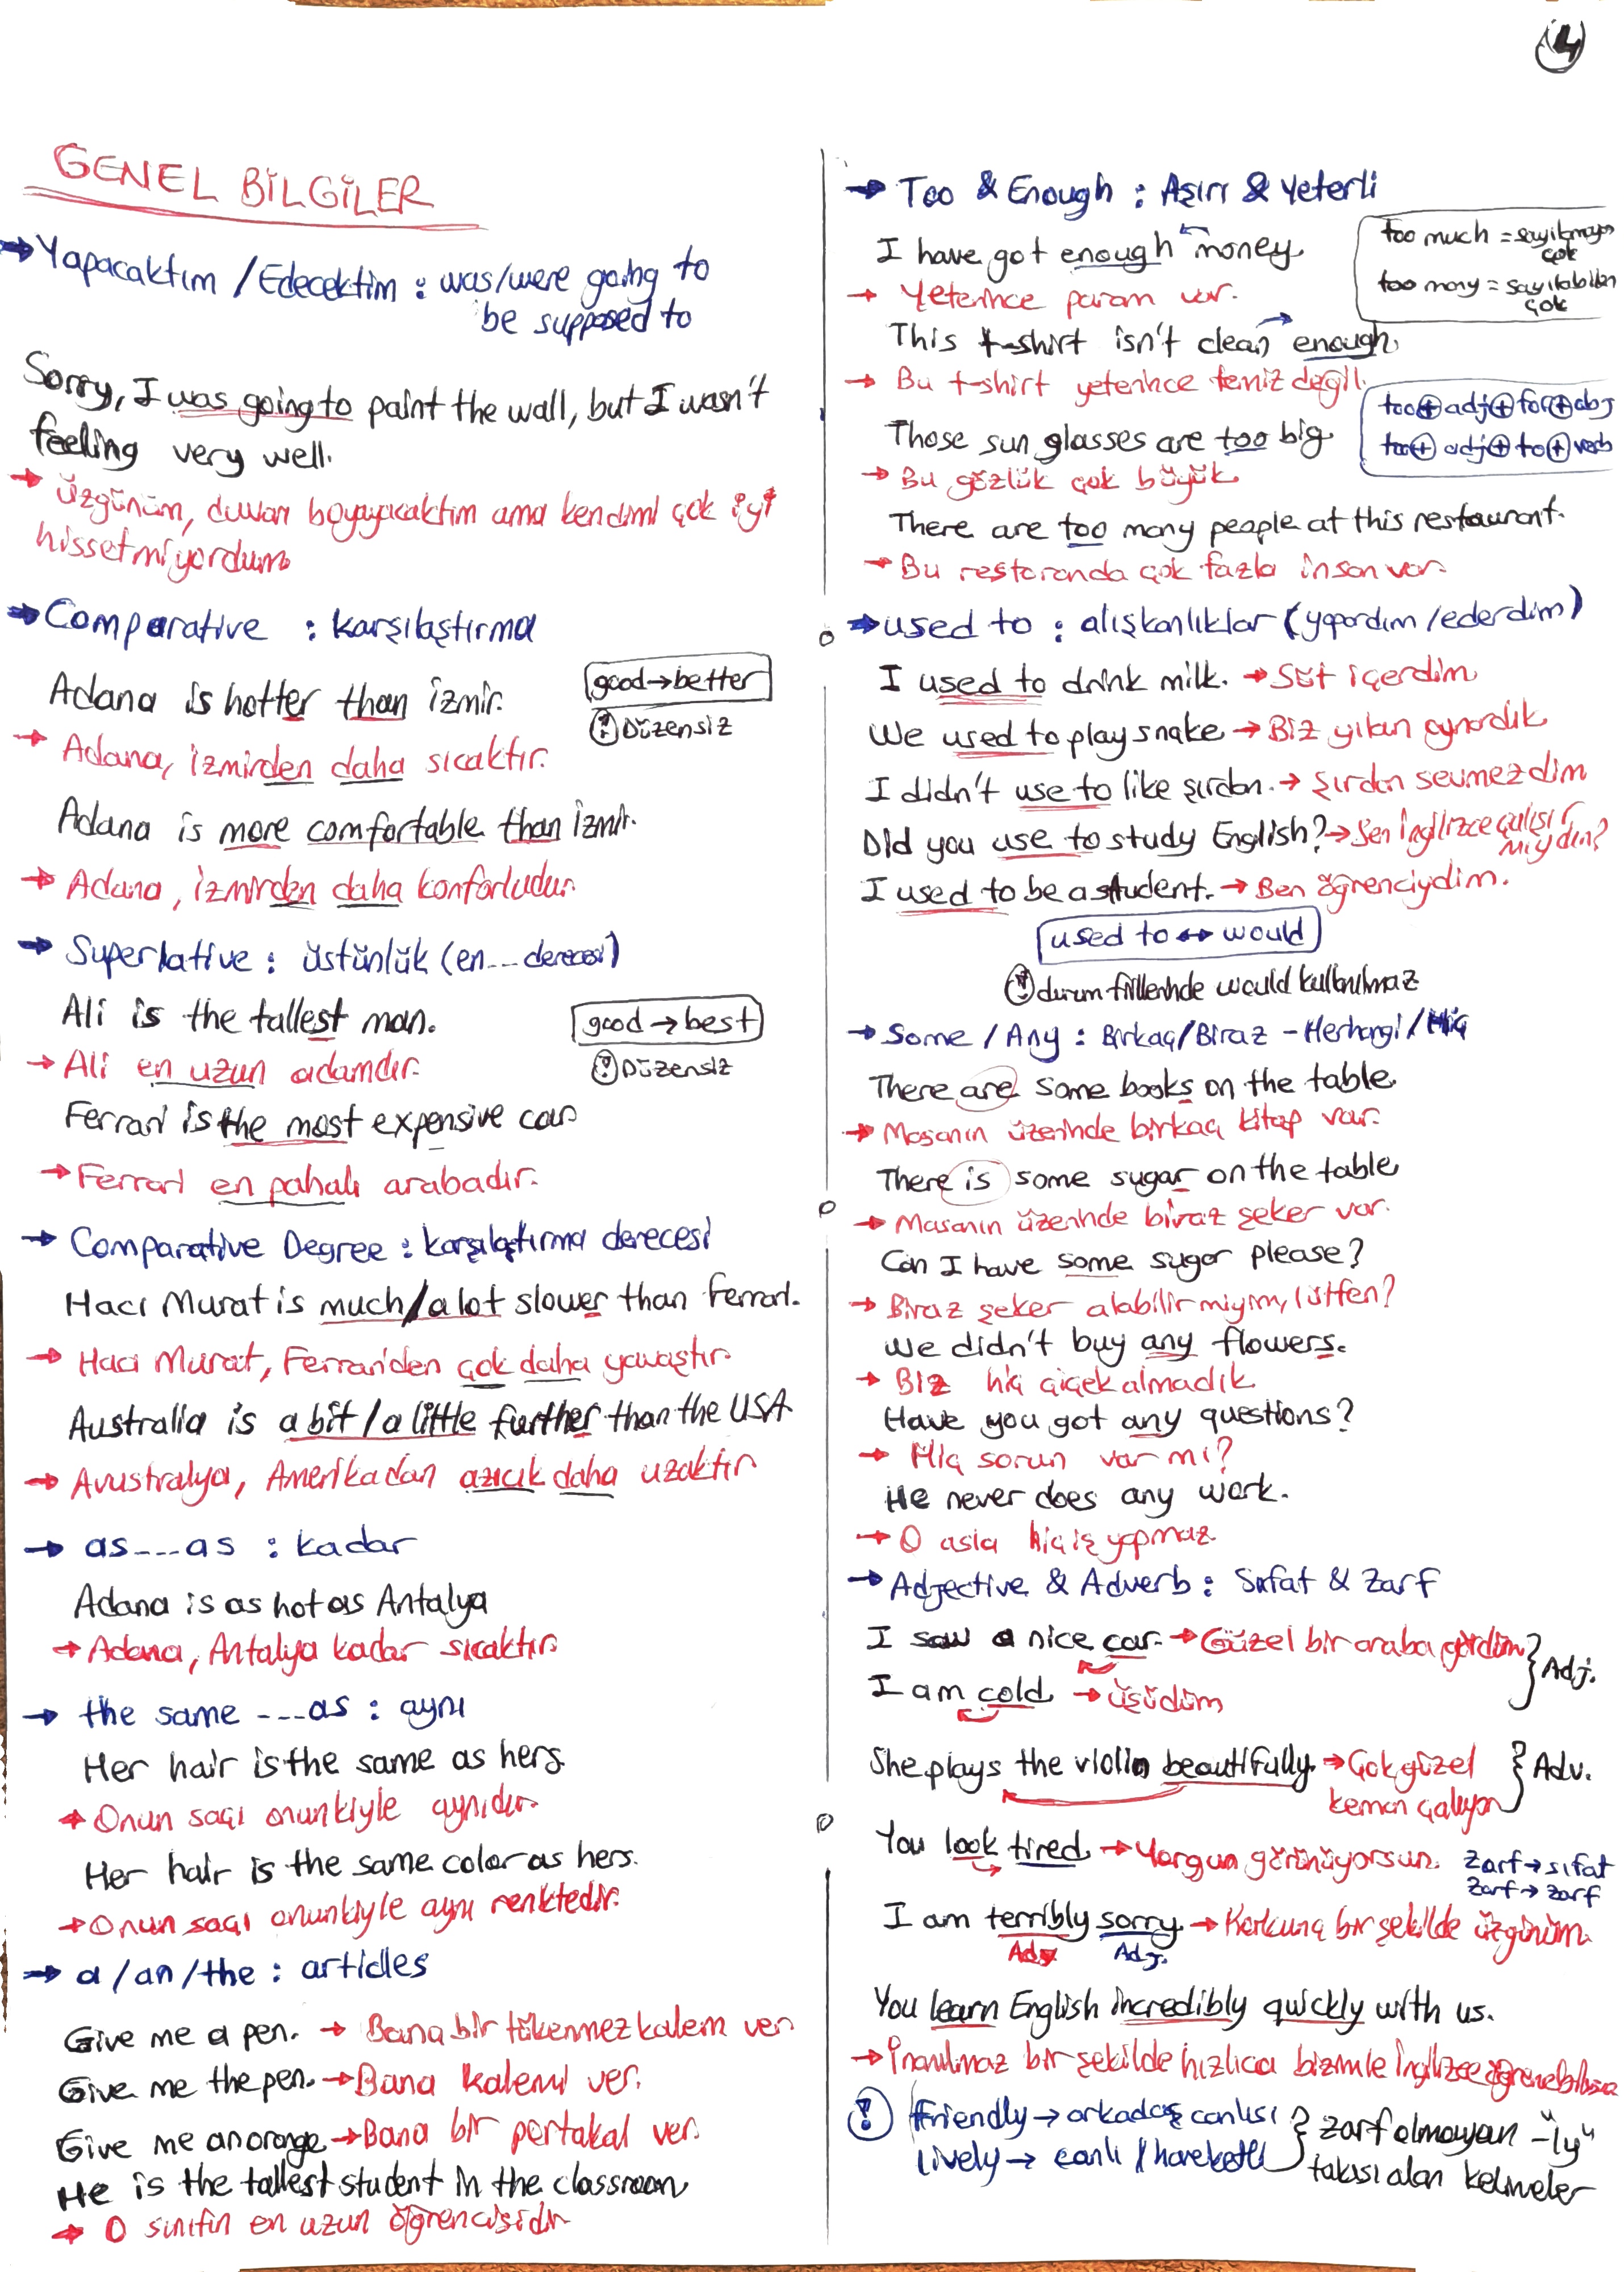 4
GENEL BİLGİLER
→ Yapacaktım / Edecektim : was/were going to
be supposed to
Sorry, I was going to paint the wall, but I wasn't
feeling very well.
→ Üzgünüm, duvarı boyayacaktım ama kendimi çok iyi
hissetmiyordum
→ Comparative : karşılaştırma
Adana is hotter than İzmir.
good → better
! Düzensiz
→ Adana, İzmirden daha sıcaktır.
Adana is more comfortable than İzmir.
→ Adana, İzmirden daha konforludur.
→ Superlative : üstünlük (en... derecesi)
Ali is the tallest man.
good → best
! Düzensiz
→ Ali en uzun adamdır.
Ferrari is the most expensive car
→ Ferrari en pahalı arabadır.
→ Comparative Degree : karşılaştırma derecesi
Hacı Murat is much/a lot slower than Ferrari.
→ Hacı Murat, Ferrari'den çok daha yavaştır
Australia is a bit / a little further than the USA
→ Avustralya, Amerikadan azıcık daha uzaktır
→ as---as : kadar
Adana is as hot as Antalya
→ Adana, Antalya kadar sıcaktır.
→ the same ---as : aynı
Her hair is the same as hers
→ Onun saçı onunkiyle aynıdır.
Her hair is the same color as hers.
→ Onun saçı onunkiyle aynı renktedir.
→ a /an /the : articles
Give me a pen. → Bana bir tükenmez kalem ver
Give me the pen. → Bana kalemi ver.
Give me an orange → Bana bir portakal ver.
He is the tallest student in the classroom
→ O sınıfın en uzun öğrencisidir
→ Too & Enough : Aşırı & Yeterli
I have got enough money.
→ Yeterince param var.
too much = sayılamayan
çok
too many = sayılabilen
çok
This t-shirt isn't clean enough.
→ Bu t-shirt yeterince temiz değil.
too + adj + for + obj
too + adj + to + verb
Those sun glasses are too big
→ Bu gözlük çok büyük
There are too many people at this restaurant.
→ Bu restoranda çok fazla insan var.
→ used to : alışkanlıklar (yapardım /ederdim)
I used to drink milk. → Süt içerdim
We used to play snake → Biz yılan oynardık
I didn't use to like şırdan. → Şırdan sevmezdim
Did you use to study English? → Sen İngilizce çalışır
mıydın?
I used to be a student. → Ben öğrenciydim.
used to ↔ would
! durum fiillerinde would kullanılmaz
→ Some / Any : Birkaç/Biraz - Herhangi/Hiç
There are some books on the table
→ Masanın üzerinde birkaç kitap var.
There is some sugar on the table
→ Masanın üzerinde biraz şeker var.
Can I have some sugar please?
→ Biraz şeker alabilir miyim, lütfen?
We didn't buy any flowers.
→ Biz hiç çiçek almadık
Have you got any questions?
→ Hiç sorun var mı?
He never does any work.
→ O asla hiç iş yapmaz
→ Adjective & Adverb : Sıfat & Zarf
I saw a nice car. → Güzel bir araba gördüm
I am cold → üşüdüm
} Adj.
She plays the violin beautifully. → Çok güzel
keman çalıyor
} Adv.
You look tired → Yorgun görünüyorsun.
Zarf → sıfat
Zarf → zarf
I am terribly sorry → Korkunç bir şekilde üzgünüm.
Adv Adj.
You learn English incredibly quickly with us.
→ İnanılmaz bir şekilde hızlıca bizimle İngilizce
! Friendly → arkadaş canlısı
lively → canlı / hareketli
} zarf olmayan -"ly"
takısı alan kelimeler